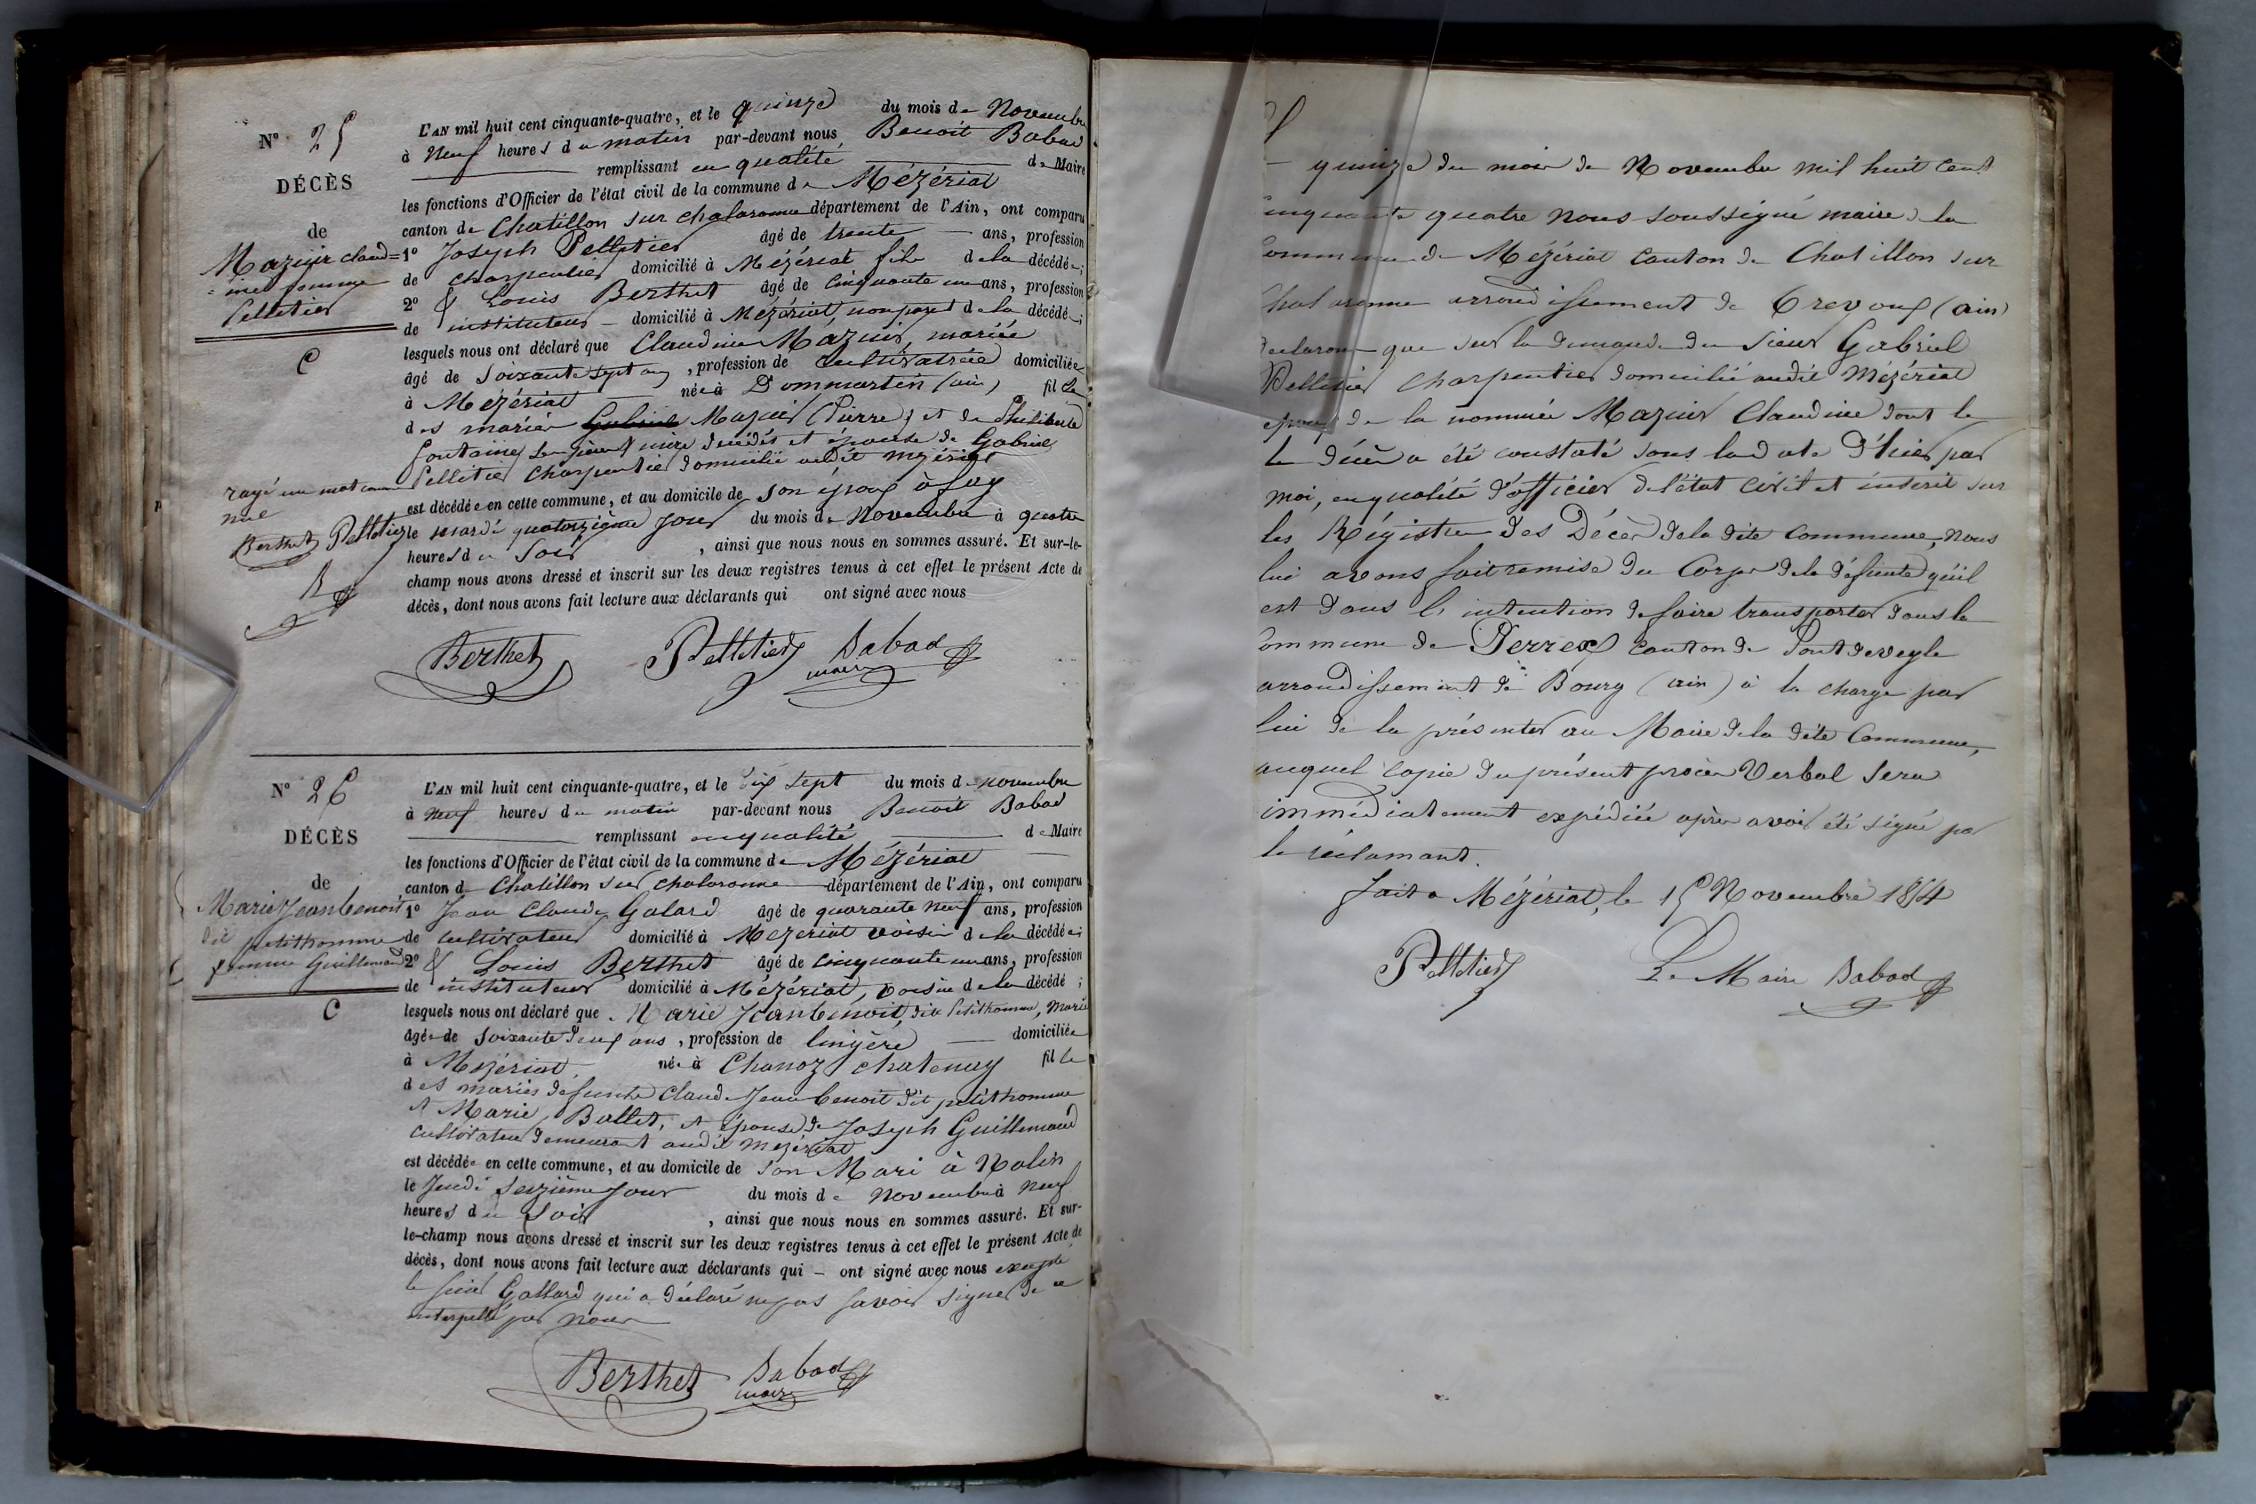 N° 25
DÉCÈS
de
Mazuir claud=
=ine femme
Pelletier
C
rayé un mot comme
nul
Berthet Pelletier
B
L'AN mil huit cent cinquante-quatre, et le quinze du mois de Novembre
à Neuf heures du matin par-devant nous Benoit Babad
remplissant en qualité de Maire
les fonctions d'Officier de l'état civil de la commune de Mézériat
canton de Chatillon sur chalaronne département de l'Ain, ont comparu
1° Joseph Pelletier âgé de trente ans, profession
de charpentier domicilié à Mézériat fils de la décédée;
2° & Louis Berthet âgé de cinquante un ans, profession
de instituteur domicilié à Mézériat, non parent de la décédée;
lesquels nous ont déclaré que Claudine Mazuir, mariée
âgé de soixante sept ans, profession de cultivatrice domiciliée
à Mézériat née à Dommartin (ain) fille
des mariés Gabriel Mazuir (Pierre) et de Philiberte
fontaine, ses père et mère décédés et épouse de Gabriel
Pelletier charpentier domicilié audit mézériat
est décédée en cette commune, et au domicile de son époux à fay
le mardi quatorzième jour du mois de Novembre à quatre
heures du soir, ainsi que nous nous en sommes assuré. Et sur-le-
champ nous avons dressé et inscrit sur les deux registres tenus à cet effet le présent Acte de
décès, dont nous avons fait lecture aux déclarants qui ont signé avec nous
Berthet Pelletier Babad
maire
N° 26
DÉCÈS
de
Marie Jeanbenoit
dit petithomme
femme Guillemaud
C
L'AN mil huit cent cinquante-quatre, et le dix sept du mois de novembre
à neuf heures du matin par-devant nous Benoit Babad
remplissant en qualité de Maire
les fonctions d'Officier de l'état civil de la commune de Mézériat
canton de Chatillon sur chalaronne département de l'Ain, ont comparu
1° Jean Claude Galard âgé de quarante neuf ans, profession
de cultivateur domicilié à Mézériat voisin de la décédée;
2° & Louis Berthet âgé de cinquante un ans, profession
de instituteur domicilié à Mézériat, voisin de la décédé;
lesquels nous ont déclaré que Marie Jeanbenoit, dit Petithomme, Marié
âgée de soixante deux ans, profession de lingère domiciliée
à Mézériat née à Chanoz chatenay fille
des mariés defunts Claude Jean benoit dit petithomme
et Marie Ballet, et épouse de Joseph Guillemaud
cultivateur demeurant audit mézériat
est décédée en cette commune, et au domicile de son Mari à Nolin
le Jeudi seizième jour du mois de Novembre à neuf
heures du soir, ainsi que nous nous en sommes assuré. Et sur-
le-champ nous avons dressé et inscrit sur les deux registres tenus à cet effet le présent Acte de
décès, dont nous avons fait lecture aux déclarants qui – ont signé avec nous excepté
le sieur Gallard qui a déclaré ne pas savoir signer de ce
interpellé par nous
Berthet Babad
maire
quinze du mois de Novembre mil huit cent
cinquante quatre nous soussigné maire de la
Commune de Mézériat canton de Chatillon sur
Chalaronne arrondissement de Trevoux (ain)
declarons que sur la demande du sieur Gabriel
Pelletier charpentier domicilié audit Mézériat
epoux de la nommée Mazuir Claudine dont le
le décès a été constaté sous la date d'hier par
moi, en qualité d'officier de l'état civil et inscrit sur
les Régistres des Décès de la dite commune, nous
lui avons fait remise du Corps de la défunte qu'il
est dans l'intention de faire transporter dans la
Commune de Perrex canton de Pont de veyle
arrondissement de Bourg (ain) à la charge par
lui de la présenter au Maire de la dite Commune,
auquel copie du présent procès Verbal sera
immédiatement expédiée après avoir été signé par
le réclamant.
fait a Mézériat, le 15 Novembre 1854
Pelletier Le Maire Babad